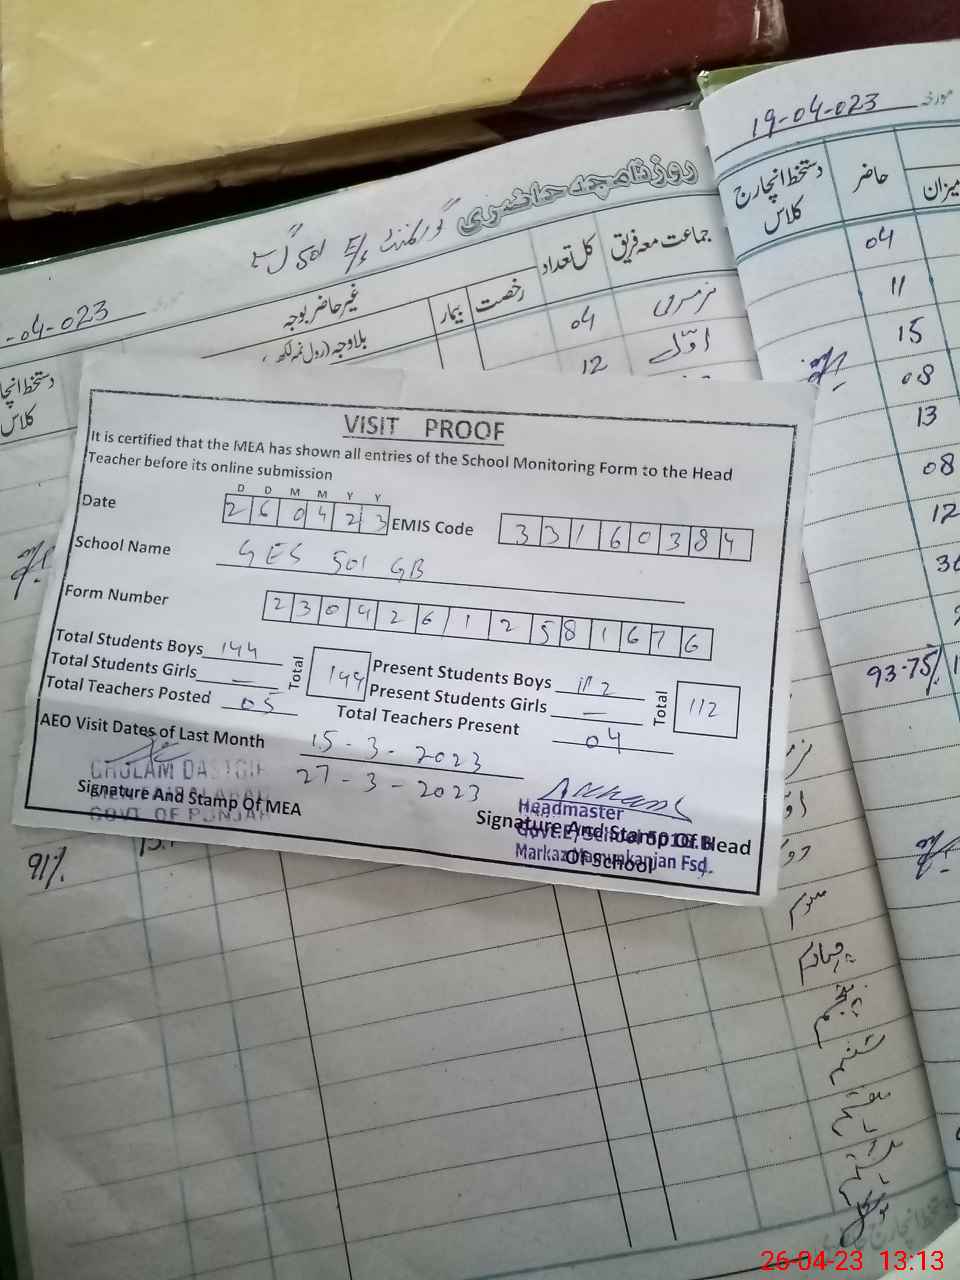 19-04-023
دستخط انچارج کلاس
حاضر
میزان
04
11
15
08
13
08
12
93.75%
روزنامچہ حاضری
گورنمنٹ E/S 501 گ ب
-04-023
جماعت معہ فریق
کل تعداد
رخصت
بیمار
غیر حاضر بوجہ
بلاوجہ (رول نمبر لکھ
دستخط انچا
کلاس
نرسری
04
اوّل
12
VISIT PROOF
It is certified that the MEA has shown all entries of the School Monitoring Form to the Head
Teacher before its online submission
D D M M Y Y
Date 2 6 0 4 2 3 EMIS Code 3 3 1 6 0 3 8 4
School Name GES 501 GB
Form Number 2 3 0 4 2 6 1 2 5 8 1 6 7 6
Total Students Boys 144 Present Students Boys 112
Total Students Girls — Total 144 Present Students Girls — Total 112
Total Teachers Posted 05 Total Teachers Present 04
AEO Visit Dates of Last Month 15-3-2023
27-3-2023
GHULAM DASTGIR
Signature And Stamp Of MEA
GOVT OF PUNJAB
Headmaster
Signature And Stamp Of Head
Of School
Markaz Mamunkanjan Fsd.
91%
سوم
چہارم
پنجم
ششم
ہفتم
ہشتم
26-04-23 13:13